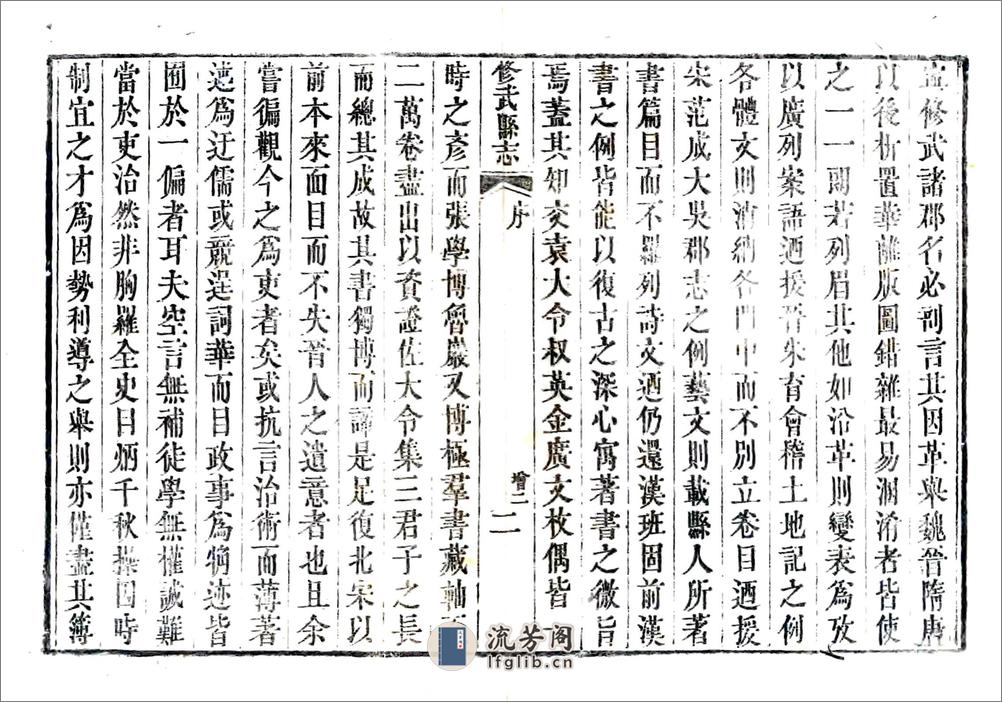 孟修武諸郡名必剖言其因革與魏晉隋唐
以後析置華離版圖錯雜最易溷淆者皆使
之一一頭若列眉其他如沿革則變表爲攷
以廣列案語迺援晉朱育會稽土地記之例
各體文則消納各門中而不別立卷目迺援
宋范成大吳郡志之例藝文則載縣人所著
書篇目而不羅列詩文迺仍還漢班固前漢
書之例皆能以復古之深心寓著書之微旨
焉蓋其知交袁大令叔英金廣文枚偶皆
修武縣志 序 增二 二
時之彥而張學博魯巖又博極羣書藏軸
二萬卷盡出以資證佐大令集三君子之長
而總其成故其書獨博而謹是足復北宋以
前本來面目而不失晉人之遺意者也且余
嘗徧觀今之爲吏者矣或抗言治術而薄著
述爲迂儒或競逞詞華而目政事爲犓迹皆
囿於一偏者耳夫空言無補徒學無權誠難
當於吏治然非胸羅全史目炳千秋操因時
制宜之才爲因勢利導之舉則亦僅盡其簿
流芳阁
lfglib.cn